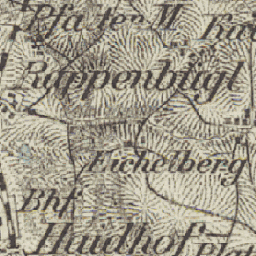 Pfa ter M
Ruppenbügl
Eichelberg
Bhf
Haidhof